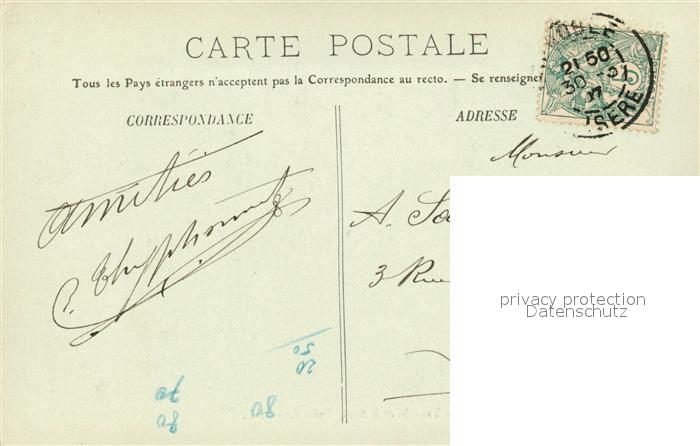 CARTE POSTALE
Tous les Pays étrangers n'acceptent pas la Correspondance au recto. — Se renseigner
CORRESPONDANCE
ADRESSE
21 50
30
ISERE
5
Amitiés
Monsieur
A.
3 Rue
privacy protection
Datenschutz
20
50
70
80
80